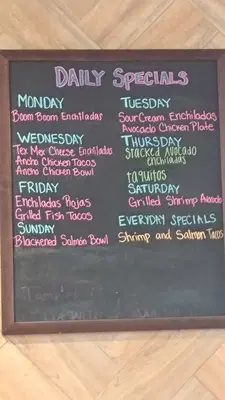 DAILY SPECIALS
MONDAY
Boom Boom Enchiladas
TUESDAY
Sour Cream Enchiladas
Avocado Chicken Plate
WEDNESDAY
Tex Mex Cheese Enchiladas
Ancho Chicken Tacos
Ancho Chicken Bowl
THURSDAY
Stacked Avocado
enchiladas
taquitos
FRIDAY
Enchiladas Rojas
Grilled Fish Tacos
SATURDAY
Grilled Shrimp Avocado
SUNDAY
Blackened Salmon Bowl
EVERYDAY SPECIALS
Shrimp and Salmon Tacos